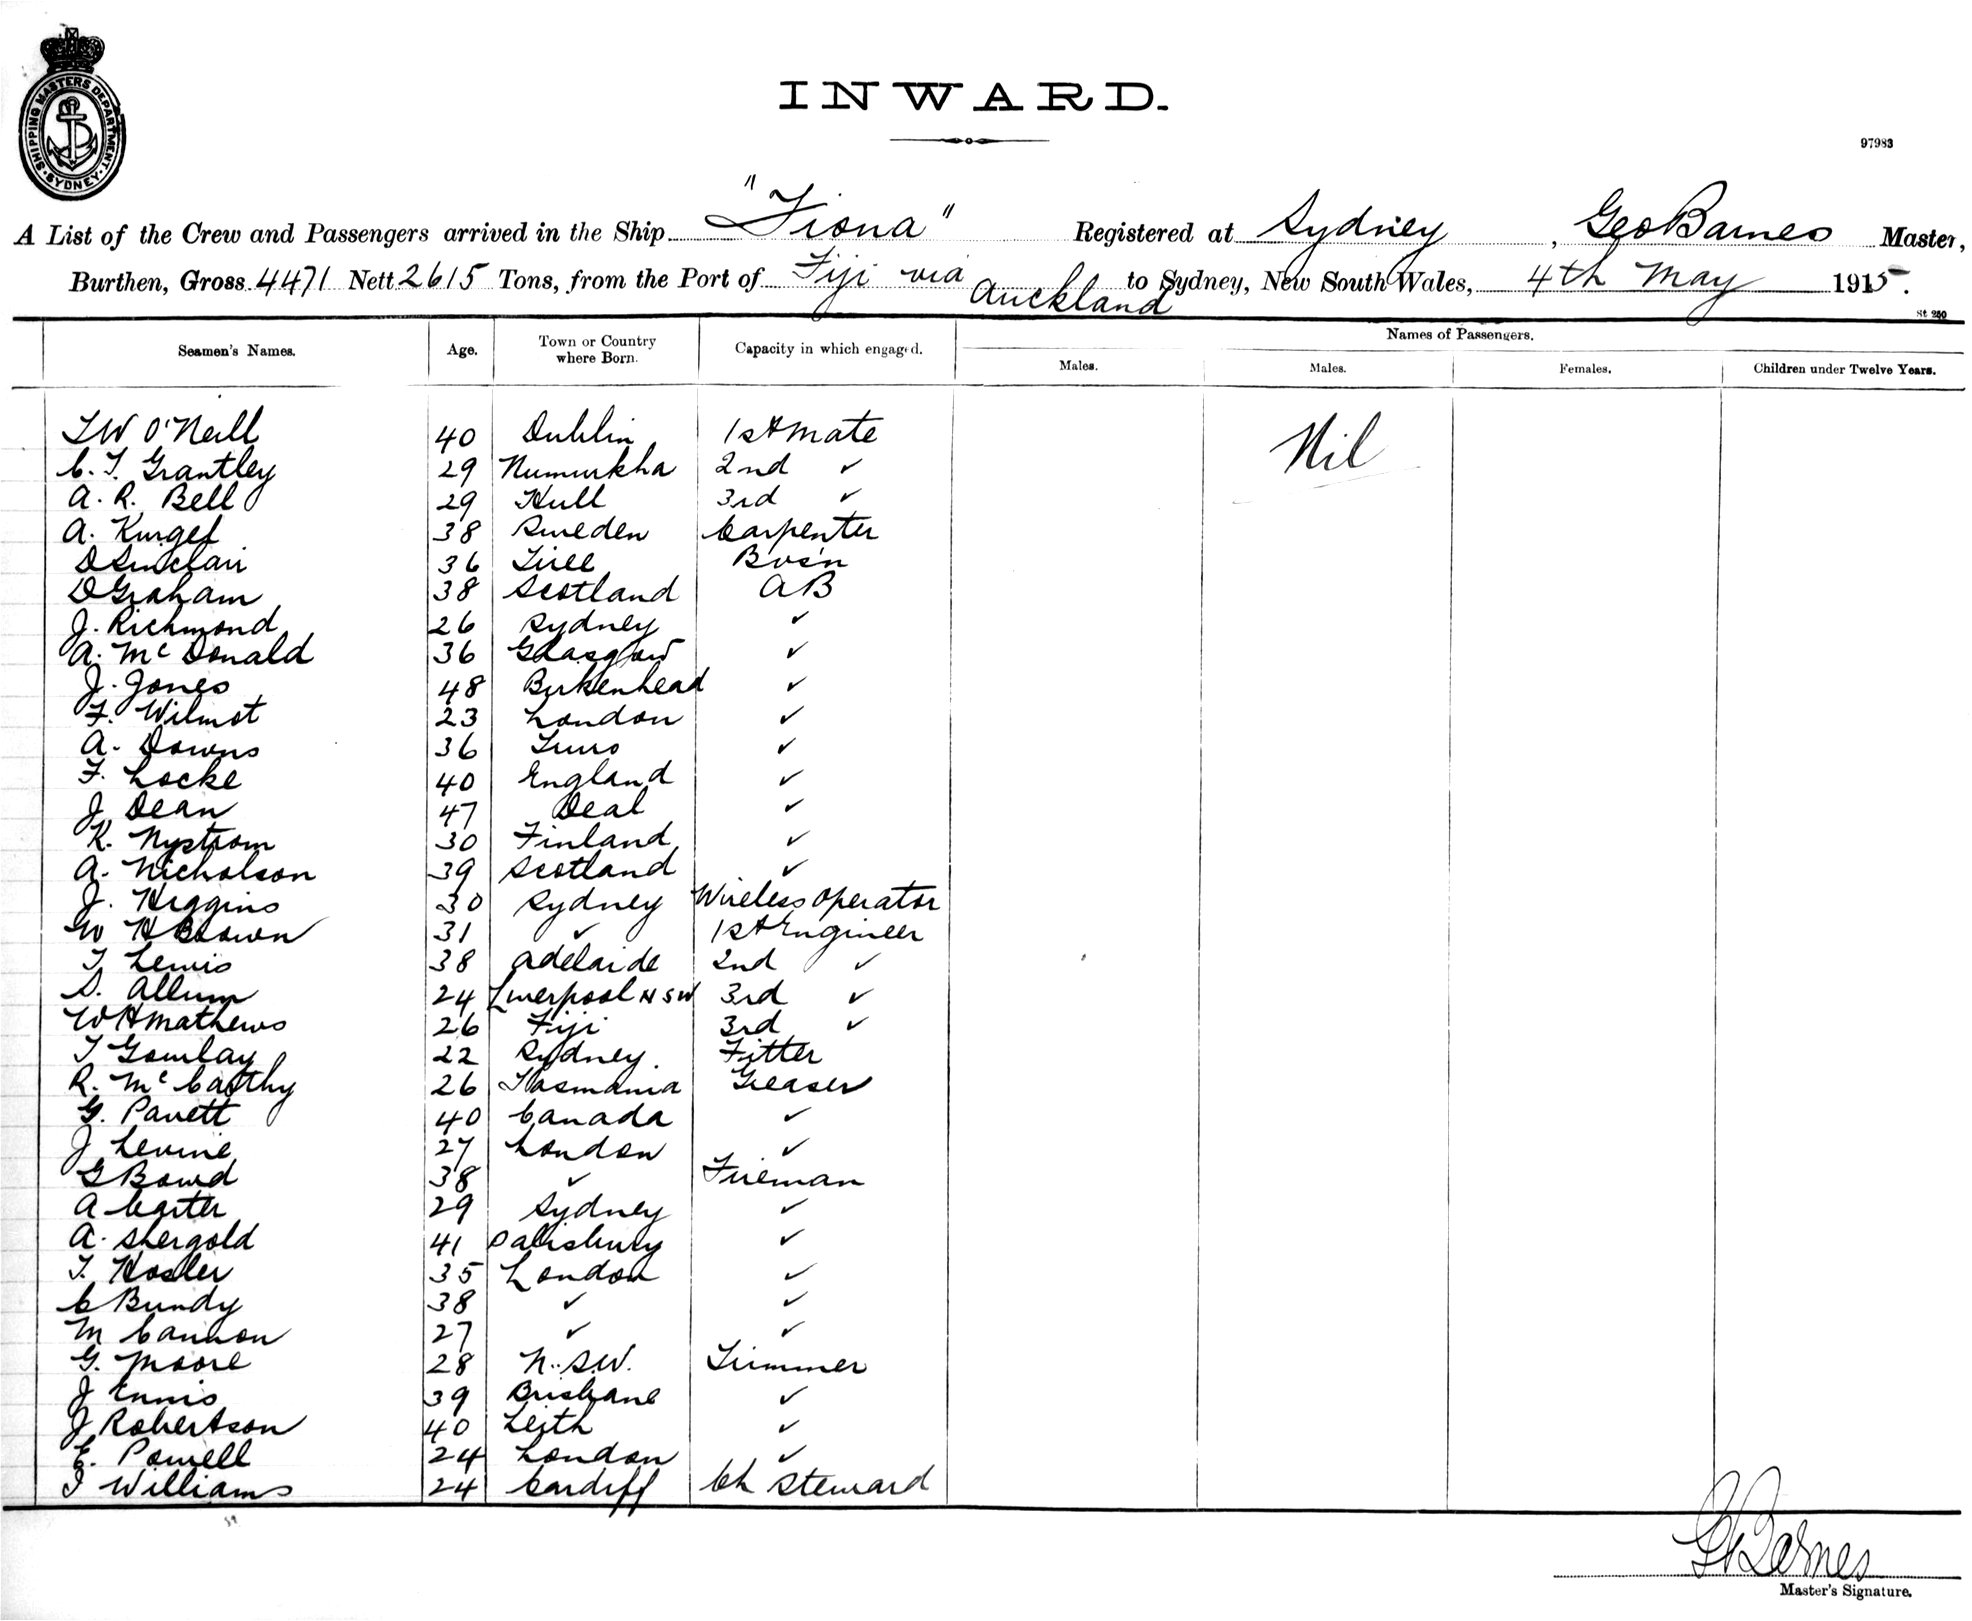 SHIPPING MASTERS DEPARTMENT · SYDNEY ·
INWARD.
97983
A List of the Crew and Passengers arrived in the Ship "Fiona" Registered at Sydney, Geo Barnes Master,
Burthen, Gross 4471 Nett 2615 Tons, from the Port of Fiji via Auckland to Sydney, New South Wales, 4th May 1915.
St 250
Seamen's Names. Age. Town or Country where Born. Capacity in which engaged. Names of Passengers.
Males. Males. Females. Children under Twelve Years.
Nil
T W O'Neill 40 Dublin 1st Mate
C. T. Grantley 29 Numurkha 2nd ✓
A. R. Bell 29 Hull 3rd ✓
A. 38 Sweden Carpenter
D Sinclair 36 Tiree Bos'n
D Graham 38 Scotland AB
J. Richmond 26 Sydney ✓
A. McDonald 36 Glasgow ✓
J. Jones 48 Birkenhead ✓
F. Wilmot 23 London ✓
A. Downs 36 Truro ✓
F. Locke 40 England ✓
J. Dean 47 Deal ✓
K. Nystrom 30 Finland ✓
A. Nicholson 39 Scotland ✓
J. Higgins 30 Sydney Wireless Operator
W H Brown 31 ✓ 1st Engineer
T Lewis 38 Adelaide 2nd ✓
S. Allum 24 Liverpool NSW 3rd ✓
W H Mathews 26 Fiji 3rd ✓
T Gourlay 22 Sydney Fitter
R. McCarthy 26 Tasmania Greaser
G. 40 Canada ✓
J Levine 27 London ✓
G Bowd 38 ✓ Fireman
A Carter 29 Sydney ✓
A. Shergold 41 Salisbury ✓
T. Hosler 35 London ✓
C Bundy 38 ✓ ✓
M Cannon 27 ✓ ✓
G. Moore 28 N.S.W. Trimmer
J Ennis 39 Brisbane ✓
J Robertson 40 Leith ✓
E. Powell 24 London ✓
Williams 24 Cardiff Ch Steward
G Barnes
Master's Signature.